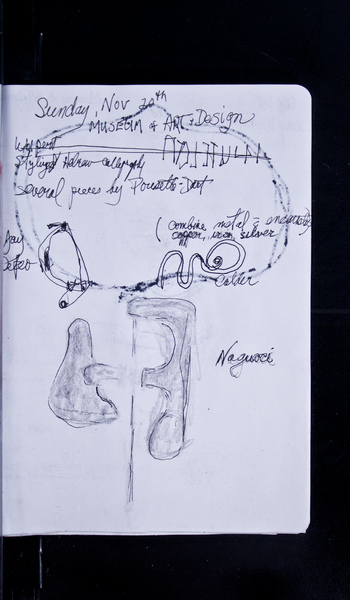 Sunday, Nov 20th
MUSEUM of ART & Design
Stylized Hebrew Calligraphy
Several pieces by Pousette-Dart
(combine metal =
copper, iron, silver
Calder
Noguuci